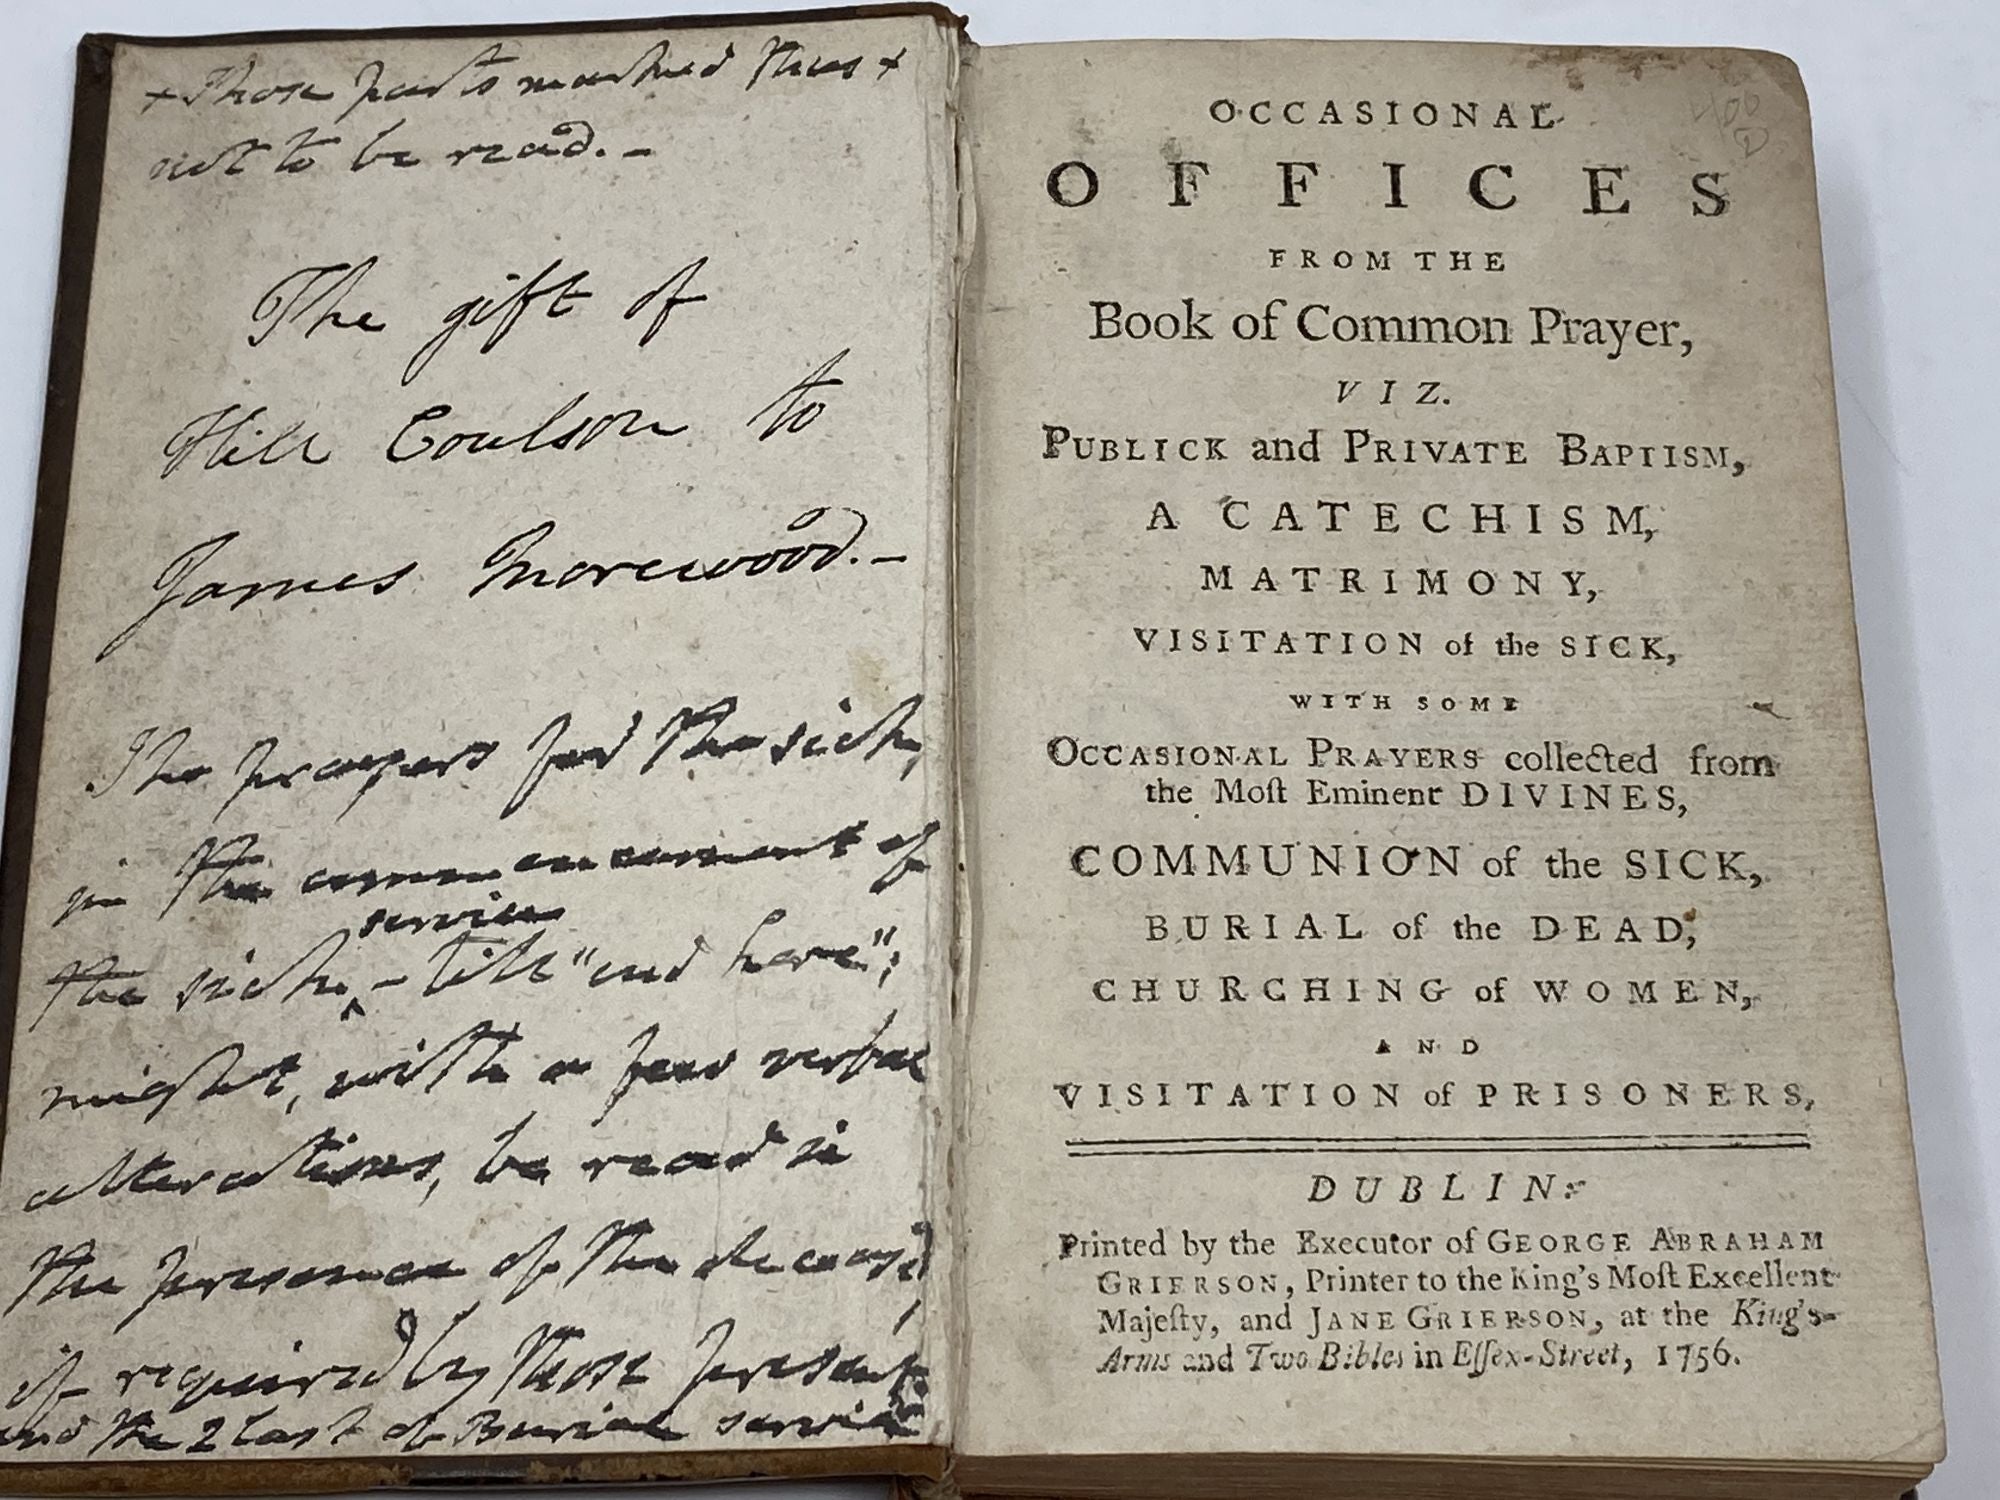 + Those parts marked thus +
not to be read. -
The gift of
Hill Coulson to
James Morewood. -
The prayers for the sick,
in the commencement of
service
the sick, - till "end here";
might, with a few verbal
alterations, be read in
the presence of the deceas'd
if required by those present
and the 2 last of Burial service
OCCASIONAL
OFFICES
FROM THE
Book of Common Prayer,
VIZ.
PUBLICK and PRIVATE BAPTISM,
A CATECHISM,
MATRIMONY,
VISITATION of the SICK,
WITH SOME
OCCASIONAL PRAYERS collected from
the Moſt Eminent DIVINES,
COMMUNION of the SICK,
BURIAL of the DEAD,
CHURCHING of WOMEN,
AND
VISITATION of PRISONERS,
DUBLIN:
Printed by the Executor of GEORGE ABRAHAM
GRIERSON, Printer to the King's Moſt Excellent
Majeſty, and JANE GRIERSON, at the King's-
Arms and Two Bibles in Eſſex-Street, 1756.